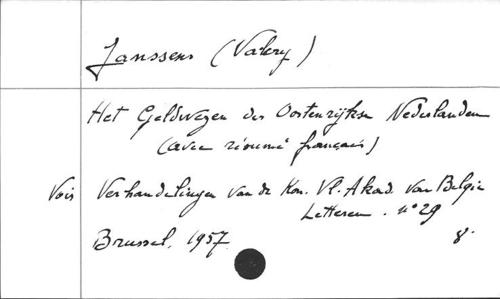 Janssens (Valery)
Het Geldwezen der Oostenrijkse Nederlanden
(avec résumé français)
Vois Verhandelingen van de Kon. Vl. Akad. van Belgie
Letteren. n° 29
Brussel, 1957. 8°